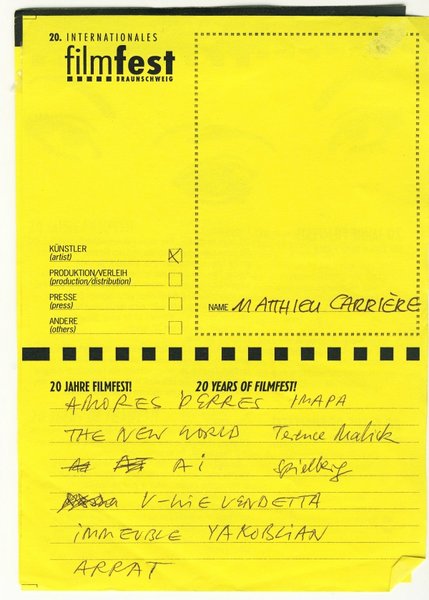 20. INTERNATIONALES
filmfest
BRAUNSCHWEIG
KÜNSTLER
(artist)
PRODUKTION/VERLEIH
(production/distribution)
PRESSE
(press)
ANDERE
(others)
NAME MATTHIEU CARRIÈRE
20 JAHRE FILMFEST! 20 YEARS OF FILMFEST!
AMORES PERRES IMAPA
THE NEW WORLD Terence Malick
Ai Spielberg
V-WIE VENDETTA
IMMEUBLE YAKOBLIAN
ARRAT